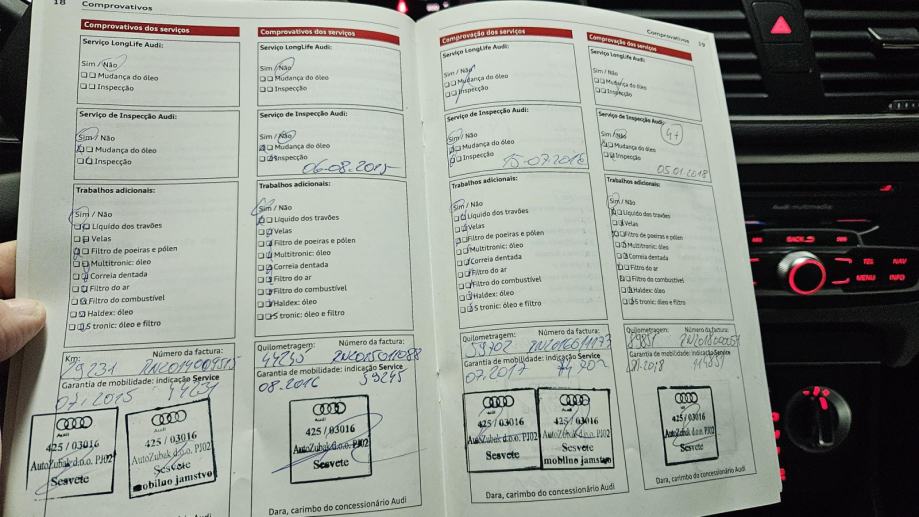 18 Comprovativos
Comprovativos dos serviços
Serviço LongLife Audi:
Sim / Não
Mudança do óleo
Inspecção
Serviço de Inspecção Audi:
Sim / Não
Mudança do óleo
Inspecção
Trabalhos adicionais:
Sim / Não
Líquido dos travões
Velas
Filtro de poeiras e pólen
Multitronic: óleo
Correia dentada
Filtro do ar
Filtro do combustível
Haldex: óleo
S tronic: óleo e filtro
Km: Número da factura:
29231
Garantia de mobilidade: indicação Service
07.2015 44231
Audi
425 / 03016
AutoZubak d.o.o. PJ02
Sesvete
Audi
425 / 03016
AutoZubak d.o.o. PJ02
Sesvete
mobilno jamstvo
Comprovativos dos serviços
Serviço LongLife Audi:
Sim / Não
Mudança do óleo
Inspecção
Serviço de Inspecção Audi:
Sim / Não
Mudança do óleo
Inspecção
06-08.2015
Trabalhos adicionais:
Sim / Não
Líquido dos travões
Velas
Filtro de poeiras e pólen
Multitronic: óleo
Correia dentada
Filtro do ar
Filtro do combustível
Haldex: óleo
S tronic: óleo e filtro
Quilometragem: Número da factura:
44245
Garantia de mobilidade: indicação Service
08.2016 59245
Audi
425 / 03016
AutoZubak d.o.o. PJ02
Sesvete
Dara, carimbo do concessionário Audi
Comprovativos 19
Comprovação dos serviços
Serviço LongLife Audi:
Sim / Não
Mudança do óleo
Inspecção
Serviço de Inspecção Audi:
Sim / Não
Mudança do óleo
Inspecção
15-07.2016
Trabalhos adicionais:
Sim / Não
Líquido dos travões
Velas
Filtro de poeiras e pólen
Multitronic: óleo
Correia dentada
Filtro do ar
Filtro do combustível
Haldex: óleo
S tronic: óleo e filtro
Quilometragem: Número da factura:
59702
Garantia de mobilidade: indicação Service
07.2017 74702
Audi
425 / 03016
AutoZubak d.o.o. PJ02
Sesvete
Audi
425 / 03016
AutoZubak d.o.o. PJ02
Sesvete
mobilno jamstvo
Dara, carimbo do concessionário Audi
Comprovação dos serviços
Serviço LongLife Audi:
Sim / Não
Mudança do óleo
Inspecção
Serviço de Inspecção Audi:
Sim / Não 4+
Mudança do óleo
Inspecção
05.01.2018
Trabalhos adicionais:
Sim / Não
Líquido dos travões
Velas
Filtro de poeiras e pólen
Multitronic: óleo
Correia dentada
Filtro do ar
Filtro do combustível
Haldex: óleo
S tronic: óleo e filtro
Quilometragem: Número da factura:
Garantia de mobilidade: indicação Service
Audi
425 / 03016
AutoZubak d.o.o. PJ02
Sesvete
Dara, carimbo do concessionário Audi
Audi multimedia
BACK
TEL NAV
MENU INFO